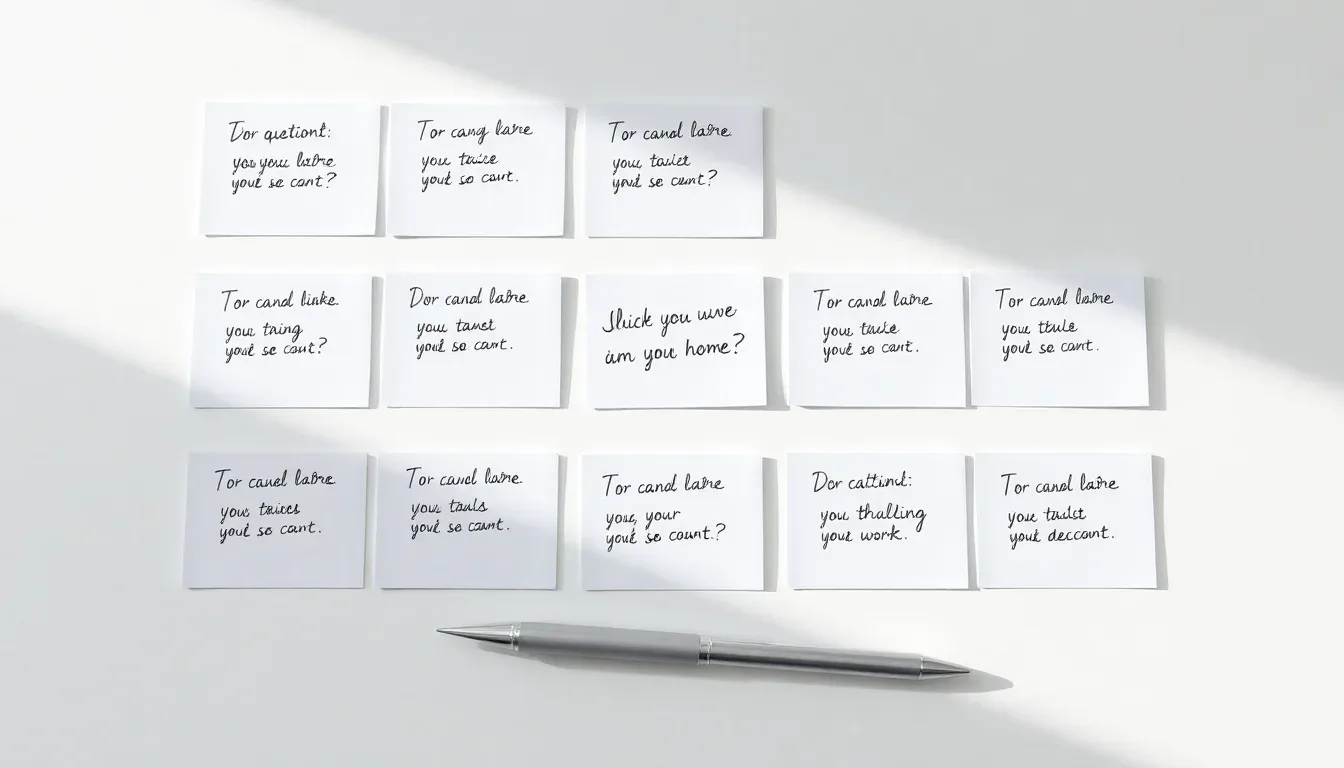 Dor quetiont:
you your labre
youd se cant?
Tor cang labre
you taice
youd so cant.
Tor canol labre.
you taiict
youd se cunt?
Tor canol linke.
you taing
youd se cant?
Dor canol labre
you tanst
youd so cant.
Jluck you uwe
am you home?
Tor canol labre
you taule
youd so cant.
Tor canol labre
you tkule
youd so cant.
Tor canol labre.
you taiccs
youd so cant.
Tor canol labre.
you tauls
youd so cant.
Tor canol labre
you, your
youd so count.?
Dor cattinut:
you thalling
your work.
Tor canol labre
you tadlst
youd deccont.